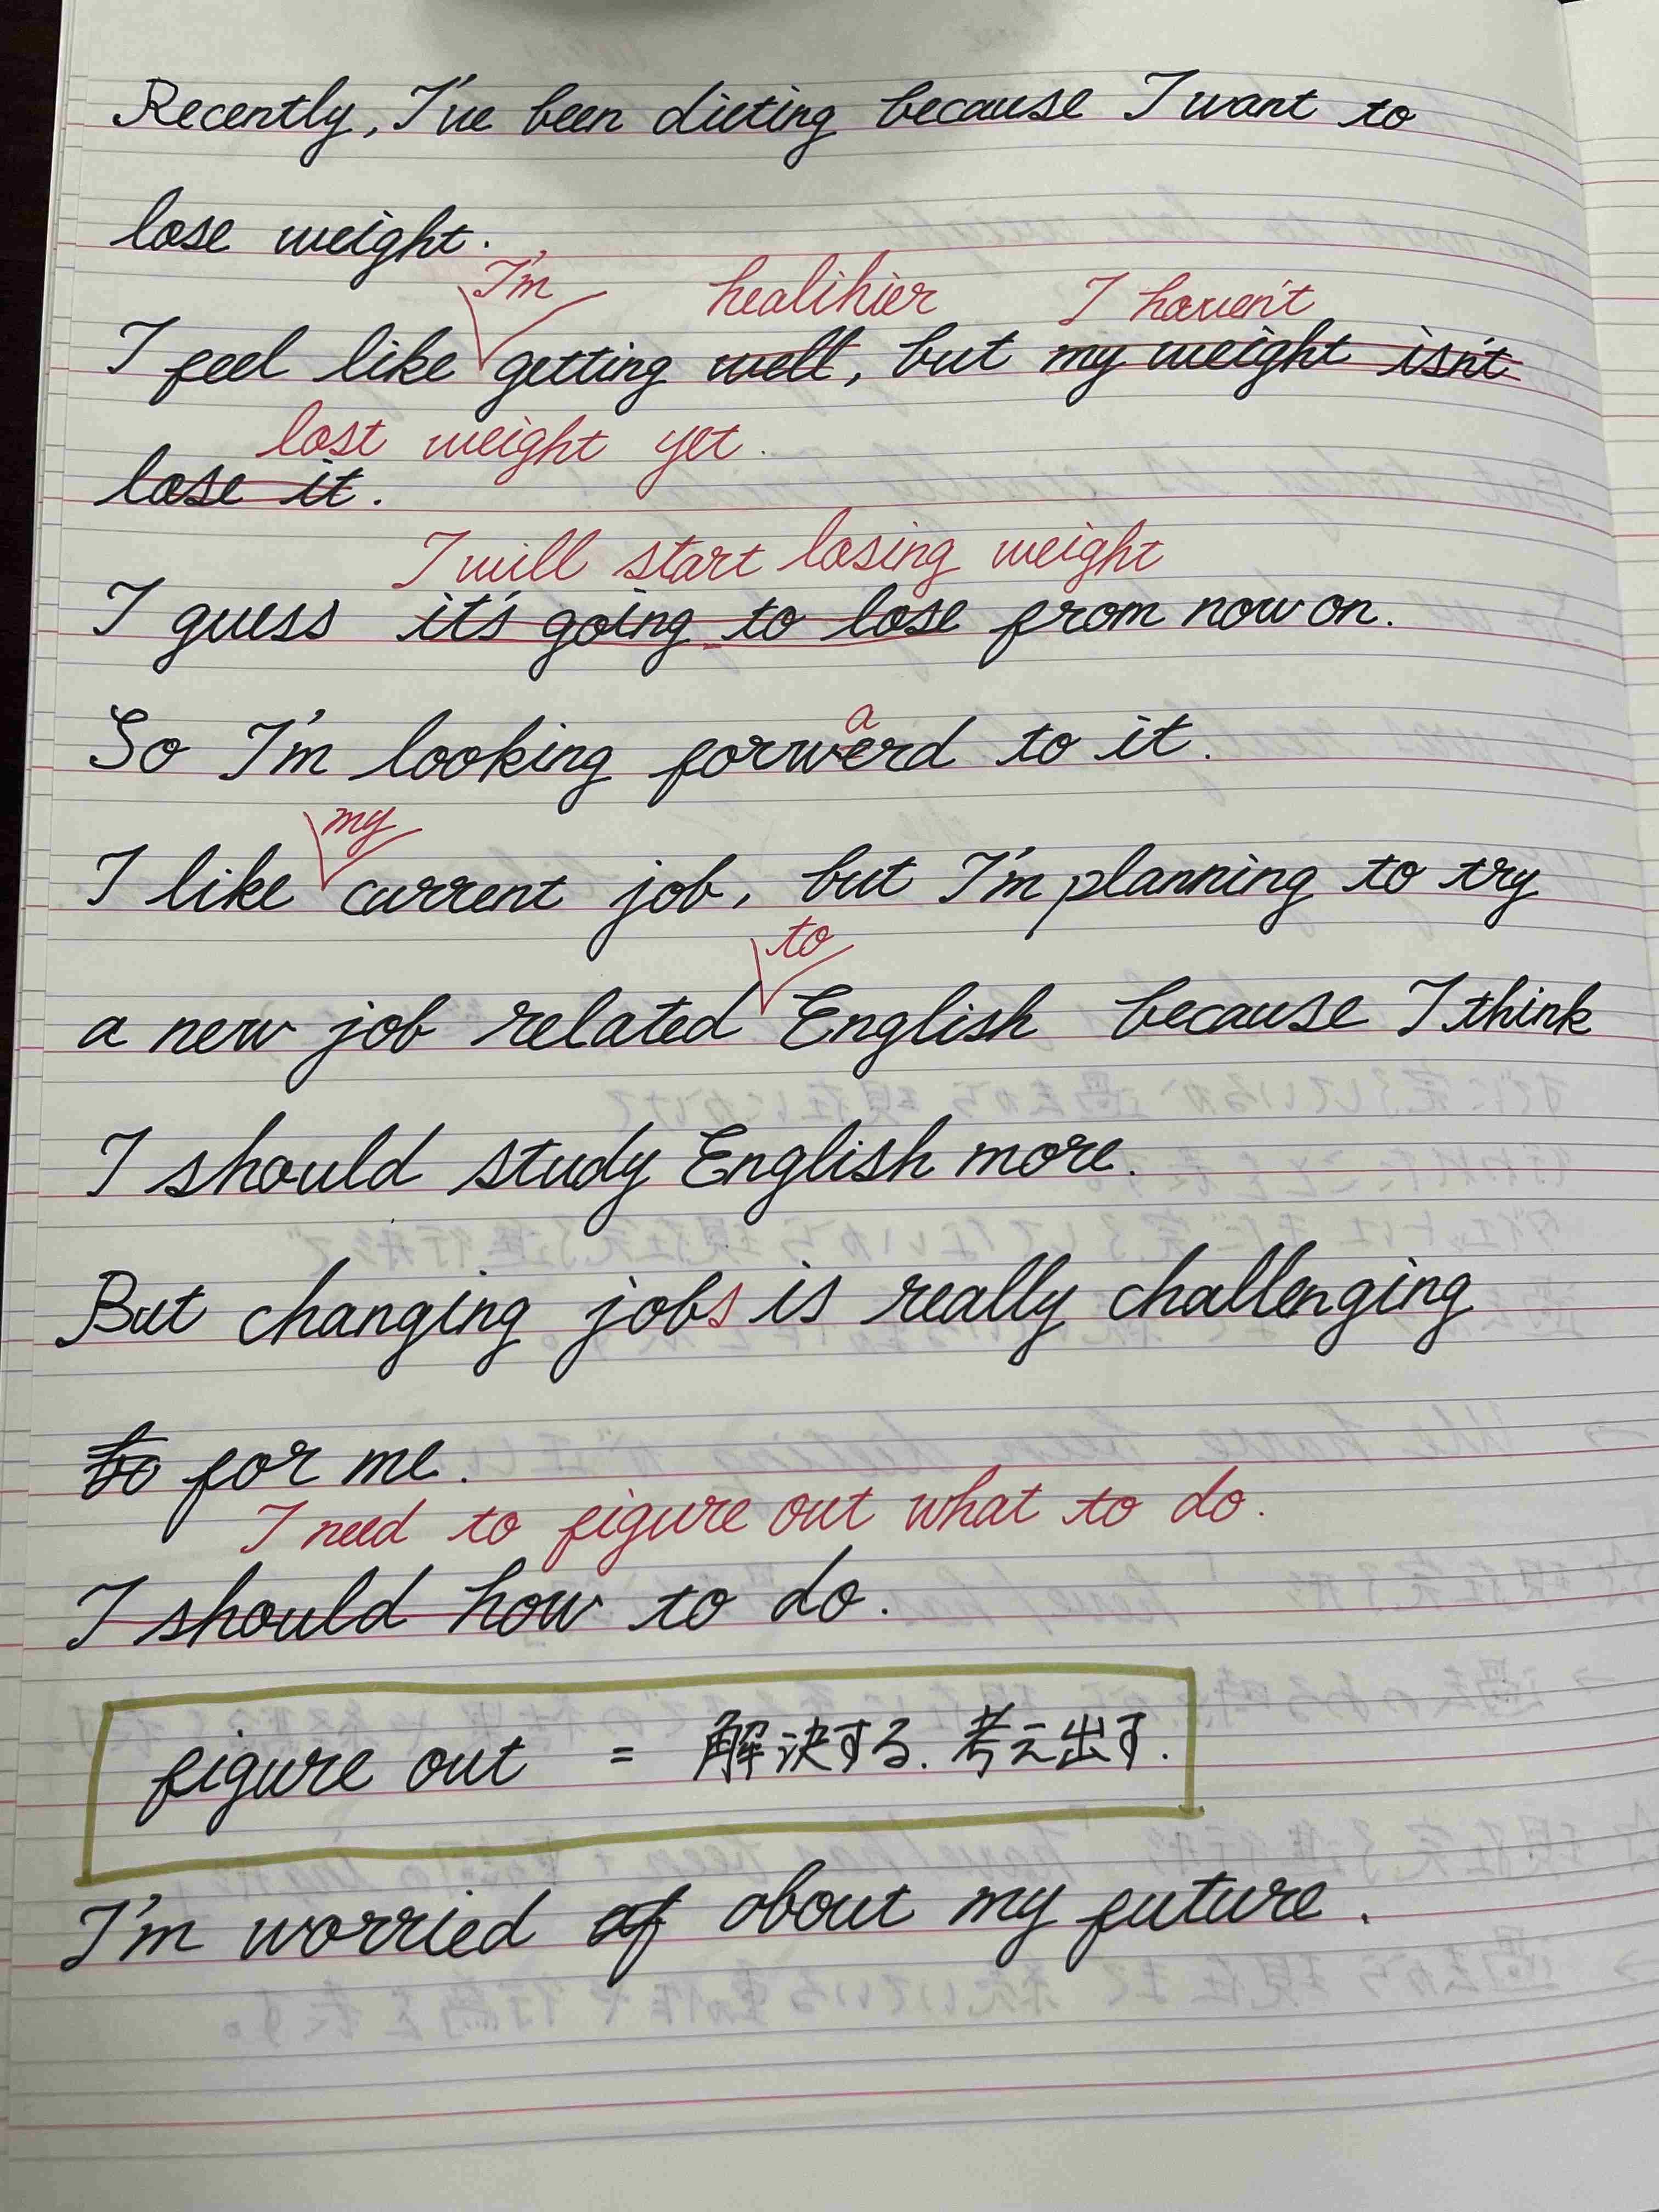 Recently, I've been dieting because I want to
lose weight.
I'm healthier I haven't
I feel like getting well, but my weight isn't
lost weight yet.
lose it.
I will start losing weight
I guess it's going to lose from now on.
a
So I'm looking forwerd to it.
my
I like current job, but I'm planning to try
to
a new job related English because I think
I should study English more.
But changing jobs is really challenging
to for me.
I need to figure out what to do.
I should how to do.
figure out = 解決する. 考え出す.
I'm worried of about my future.